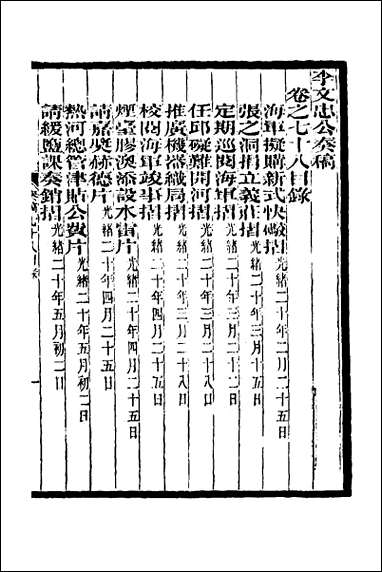 李文忠公奏稿
卷之七十八目錄
海軍擬購新式快礮摺光緒二十年二月二十五日
張之洞捐立義莊摺光緒二十年三月十五日
定期巡閱海軍摺光緒二十年三月二十二日
任邱礙難開河摺光緒二十年三月二十八日
推廣機器織局摺光緒二十年三月二十八日
校閱海軍竣事摺光緒二十年四月二十五日
煙臺膠澳添設水雷片光緒二十年四月二十五日
請嘉獎赫德片光緒二十年四月二十五日
熱河總管津貼公費片光緒二十年五月初二日
請緩鹽課奏銷摺光緒二十年五月初二日